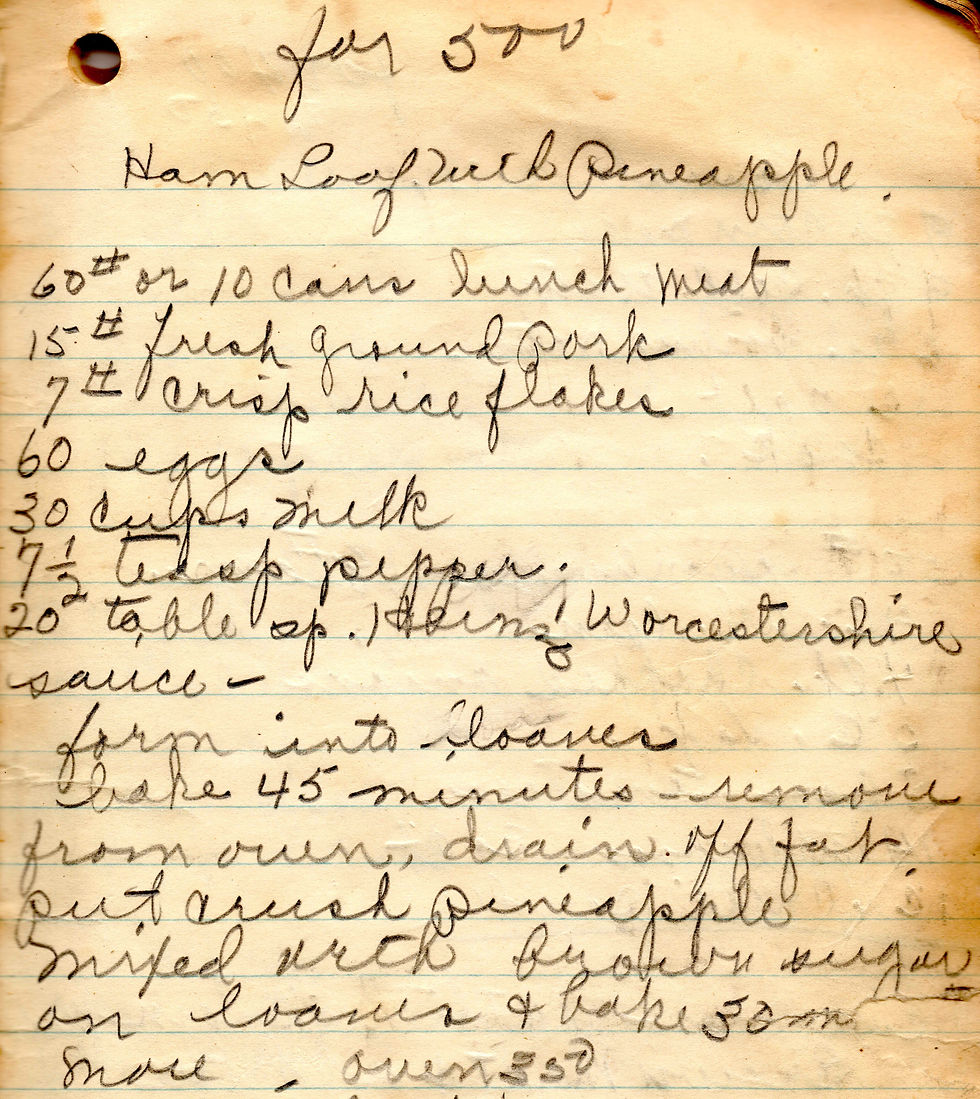 for 500
Ham Loaf with Pineapple.
60# or 10 cans lunch meat
15# fresh ground Pork
7# crisp rice flakes
60 eggs
30 cups milk
7 1/2 teasp pepper.
20 table sp. Heinz Worcestershire
sauce -
form into loaves
bake 45 minutes - remove
from oven, drain off fat,
put crush pineapple
mixed with brown sugar
on loaves & bake 30 m
more - oven 350